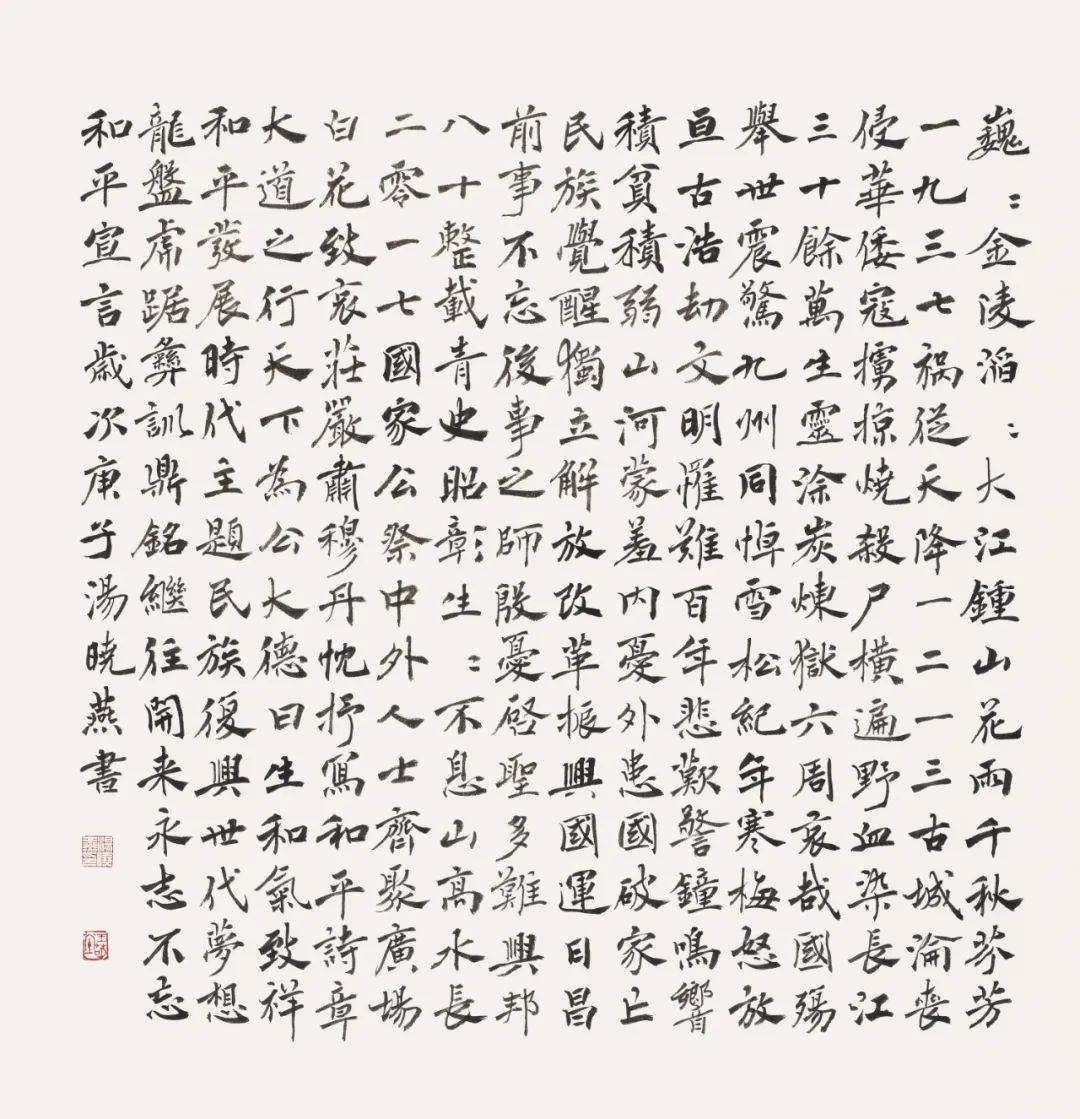 巍〻金陵滔〻大江鍾山花雨千秋芬芳
一九三七禍從天降一二一三古城淪喪
侵華倭寇擄掠燒殺尸橫遍野血染長江
三十餘萬生靈塗炭煉獄六周哀哉國殤
舉世震驚九州同悼雪松紀年寒梅怒放
亘古浩劫文明罹難百年悲歎警鐘鳴響
積貧積弱山河蒙羞内憂外患國破家亡
民族覺醒獨立解放改革振興國運日昌
前事不忘後事之師殷憂啓聖多難興邦
八十整載青史昭彰生〻不息山高水長
二零一七國家公祭中外人士齊聚廣場
白花致哀莊嚴肅穆丹忱抒寫和平詩章
大道之行天下為公大德曰生和氣致祥
和平發展時代主題民族復興世代夢想
龍盤虎踞彝訓鼎銘繼往開来永志不忘
和平宣言歲次庚子湯曉燕書